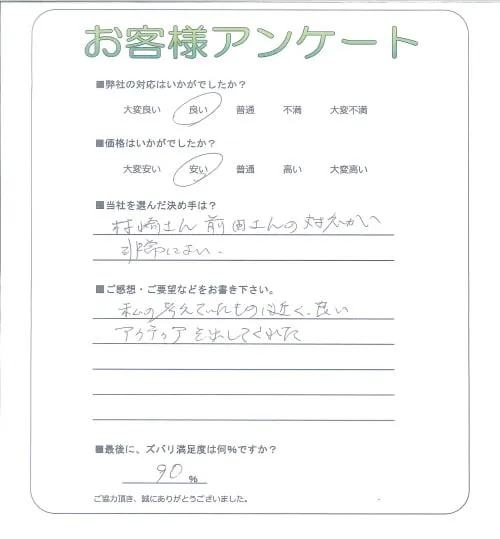 お客様アンケート
■弊社の対応はいかがでしたか？
大変良い 良い 普通 不満 大変不満
■価格はいかがでしたか？
大変安い 安い 普通 高い 大変高い
■当社を選んだ決め手は？
村崎さん 前田さんの対応がい
非常によい.
■ご感想・ご要望などをお書き下さい。
私の考えていたものに近く、良い
アイディアを出してくれた
■最後に、ズバリ満足度は何%ですか？
90 %
ご協力頂き、誠にありがとうございました。